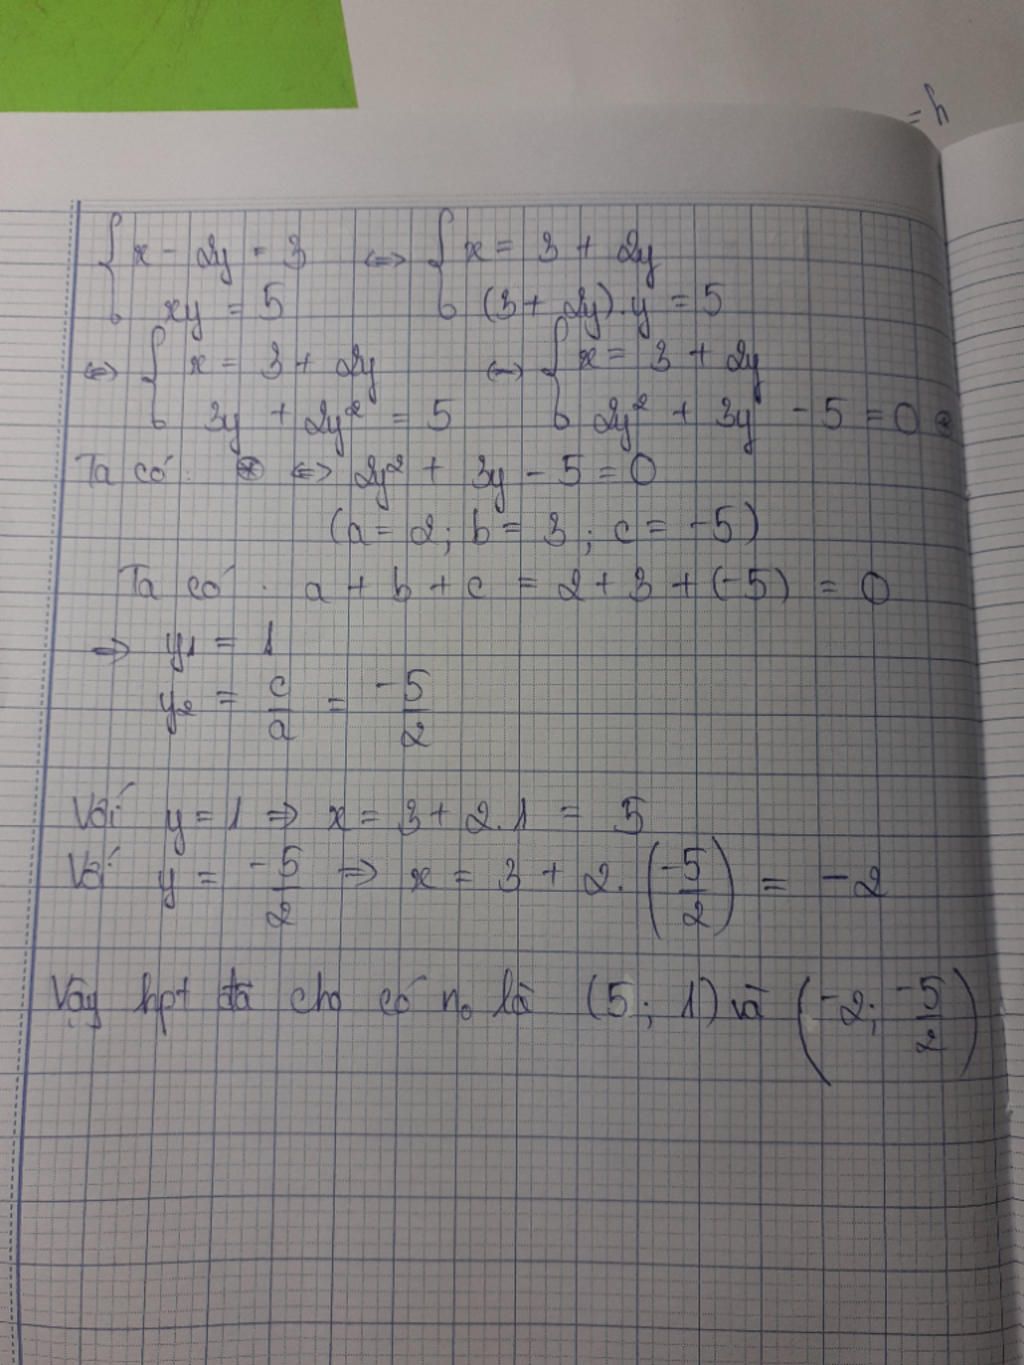 = h
{ x - 2y = 3 ⇔ { x = 3 + 2y
xy = 5 (3 + 2y).y = 5
⇔ { x = 3 + 2y ⇔ { x = 3 + 2y
3y + 2y² = 5 2y² + 3y - 5 = 0 (*)
Ta có: (*) ⇔ 2y² + 3y - 5 = 0
(a = 2; b = 3; c = -5)
Ta có: a + b + c = 2 + 3 + (-5) = 0
⇒ y₁ = 1
y₂ = c/a = -5/2
Với y = 1 ⇒ x = 3 + 2.1 = 5
Với y = -5/2 ⇒ x = 3 + 2.(-5/2) = -2
Vậy hpt đã cho có n₀ là (5; 1) và (-2; -5/2)